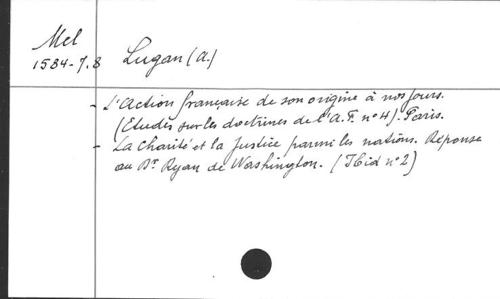 Mel
1584-7.8 Lugan (A.)
- L'Action française de son origine à nos jours.
(Etudes sur les doctrines de l'A.F. n° 4). Paris.
- La Charité et la Justice parmi les nations. Réponse
au Dr Ryan de Washington. (Ibid n° 2)